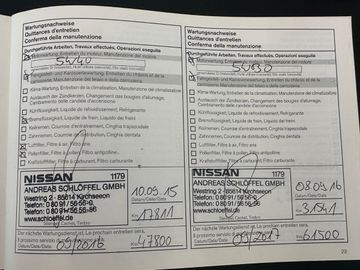 Wartungsnachweise
Quittances d'entretien
Conferma della manutenzione
Durchgeführte Arbeiten, Travaux effectués, Operazioni eseguite
Motorwartung, Entretien du moteur, Manutenzione del motore
Fahrgestell- und Karosseriewartung, Entretien du châssis et de la carrosserie, Manutenzione del telaio e della carrozzeria
Klima-Wartung, Entretien de la climatisation, Manutenzione del climatizzatore
Austausch der Zündkerzen, Changement des bougies d'allumage, Cambiamento delle candele d'accensione
Kühlflüssigkeit, Liquide de refroidissement, Refrigerante
Bremsflüssigkeit, Liquide de frein, Liquido dei freni
Keilriemen, Courroies d'entraînement, Cinghia trapezoidale
Zahnriemen, Courroie de distribution, Cinghia dentata
Luftfilter, Filtre à air, Filtro aria
Pollenfilter, Filtre à pollen, Filtro antipolline
Kraftstofffilter, Filtre à carburant, Filtro carburante
NISSAN 1179
ANDREAS SCHLÖFFEL GMBH
Westring 2 - 85614 Kirchseeon
Telefon: 0 80 91 / 56 56-56
www.schloeffel.de
10.09.15
Datum/Date/Data
Km 17811
Stempel, Cachet, Timbro
Der nächste Wartungsdienst ist, Le prochain entretien sera,
Il prossimo servizio di manutenzione
09/2016
Km 47800
Datum/Date/Data
Wartungsnachweise
Quittances d'entretien
Conferma della manutenzione
Durchgeführte Arbeiten, Travaux effectués, Operazioni eseguite
Motorwartung, Entretien du moteur, Manutenzione del motore
Fahrgestell- und Karosseriewartung, Entretien du châssis et de la carrosserie, Manutenzione del telaio e della carrozzeria
Klima-Wartung, Entretien de la climatisation, Manutenzione del climatizzatore
Austausch der Zündkerzen, Changement des bougies d'allumage, Cambiamento delle candele d'accensione
Kühlflüssigkeit, Liquide de refroidissement, Refrigerante
Bremsflüssigkeit, Liquide de frein, Liquido dei freni
Keilriemen, Courroies d'entraînement, Cinghia trapezoidale
Zahnriemen, Courroie de distribution, Cinghia dentata
Luftfilter, Filtre à air, Filtro aria
Pollenfilter, Filtre à pollen, Filtro antipolline
Kraftstofffilter, Filtre à carburant, Filtro carburante
NISSAN 1179
ANDREAS SCHLÖFFEL GMBH
Westring 2 - 85614 Kirchseeon
Telefon: 0 80 91 / 56 56-56
www.schloeffel.de
08.09.16
Datum/Date/Data
Km 31541
Stempel, Cachet, Timbro
Der nächste Wartungsdienst ist, Le prochain entretien sera,
Il prossimo servizio di manutenzione
09/2017
Km 61500
Datum/Date/Data
23